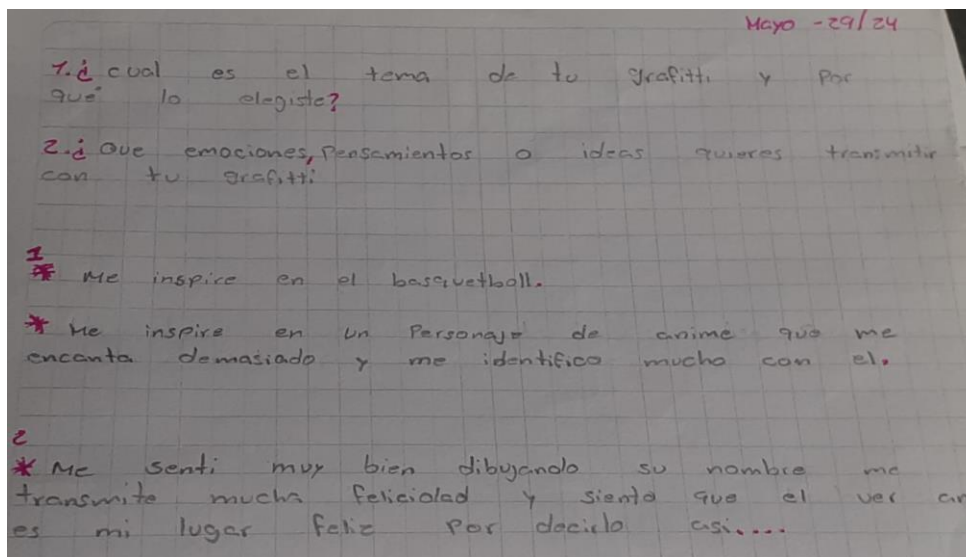 Mayo - 29/24
1. ¿ cual es el tema de tu grafitti y por
qué lo elegiste?
2. ¿ Que emociones, Pensamientos o ideas quieres transmitir
con tu grafitti
1
* Me inspire en el basquetball.
* Me inspire en un Personaje de anime que me
encanta demasiado y me identifico mucho con el.
2
* Me senti muy bien dibujando su nombre me
transmite mucha felicidad y siento que el ver
es mi lugar feliz por decirlo asi....